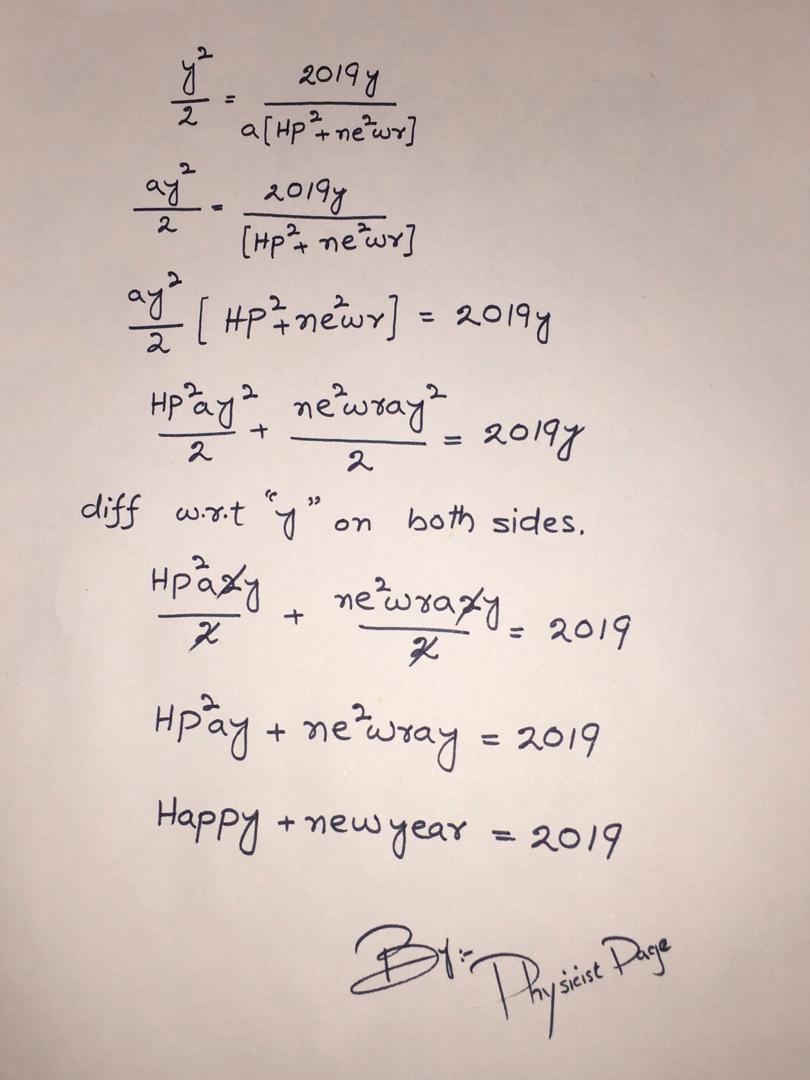 y²/2 = 2019y/a[HP²+ne²wr]
ay²/2 = 2019y/[HP²+ne²wr]
ay²/2 [HP²+ne²wr] = 2019y
HP²ay²/2 + ne²wray²/2 = 2019y
diff w.r.t "y" on both sides.
HP²a2y/2 + ne²wra2y/2 = 2019
HP²ay + ne²wray = 2019
Happy + new year = 2019
By:- Physicist Page